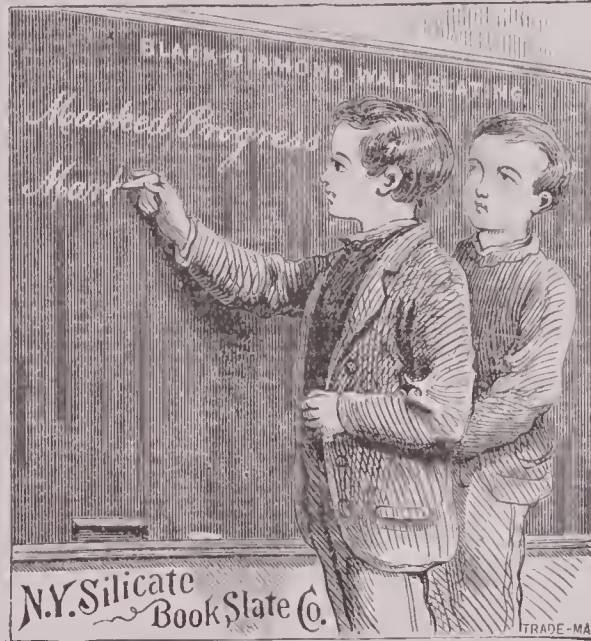 BLACK DIAMOND WALL SLATING
Marked Progress
Mark
N.Y. Silicate
Book Slate Co.
TRADE-MA